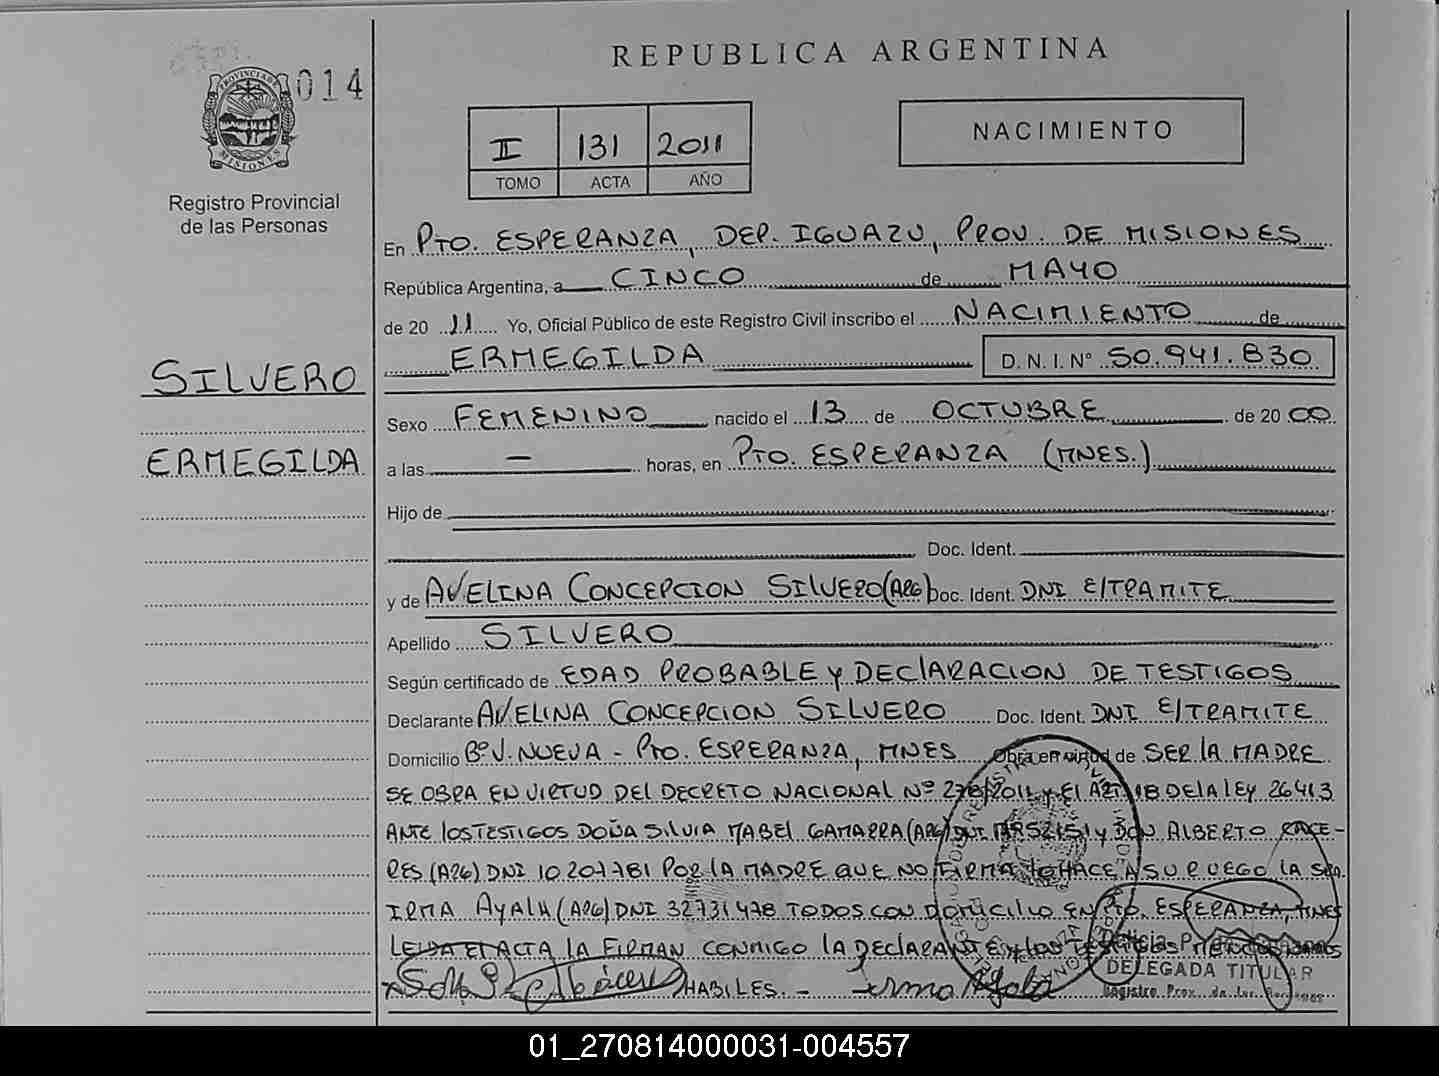 REPUBLICA ARGENTINA
PROVINCIA DE MISIONES
014
II 131 2011
TOMO ACTA AÑO
NACIMIENTO
Registro Provincial
de las Personas
En PTO. ESPERANZA, DEP. IGUAZU, PROV. DE MISIONES
República Argentina, a CINCO de MAYO
de 20 11 Yo, Oficial Público de este Registro Civil inscribo el NACIMIENTO de
ERMEGILDA D.N.I. N° 50.941.830
SILVERO
ERMEGILDA
Sexo FEMENINO nacido el 13 de OCTUBRE de 20 00
a las – horas, en PTO. ESPERANZA (MNES.)
Hijo de
Doc. Ident.
y de AVELINA CONCEPCION SILVERO (ARG) Doc. Ident. DNI E/TRAMITE
Apellido SILVERO
Según certificado de EDAD PROBABLE Y DECLARACION DE TESTIGOS
Declarante AVELINA CONCEPCION SILVERO Doc. Ident. DNI E/TRAMITE
Domicilio B° V. NUEVA - PTO. ESPERANZA, MNES Obra en virtud de SER LA MADRE
SE OBRA EN VIRTUD DEL DECRETO NACIONAL N° 278/2011 Y EL ART. 18 DE LA LEY 26413
ANTE LOS TESTIGOS DOÑA SILVIA MABEL GAMARRA (ARG) DNI Y DON ALBERTO CACE-
RES (ARG) DNI 10.207.781 POR LA MADRE QUE NO FIRMA LO HACE A SU RUEGO LA SRA.
IRMA AYALA (ARG) DNI 32731478 TODOS CON DOMICILIO EN PTO. ESPERANZA, MNES
LEIDA EL ACTA LA FIRMAN CONMIGO LA DECLARANTE Y LOS TESTIGOS
HABILES. - Irma Ayala
DELEGADA TITULAR
Registro Prov. de las Personas
01_270814000031-004557